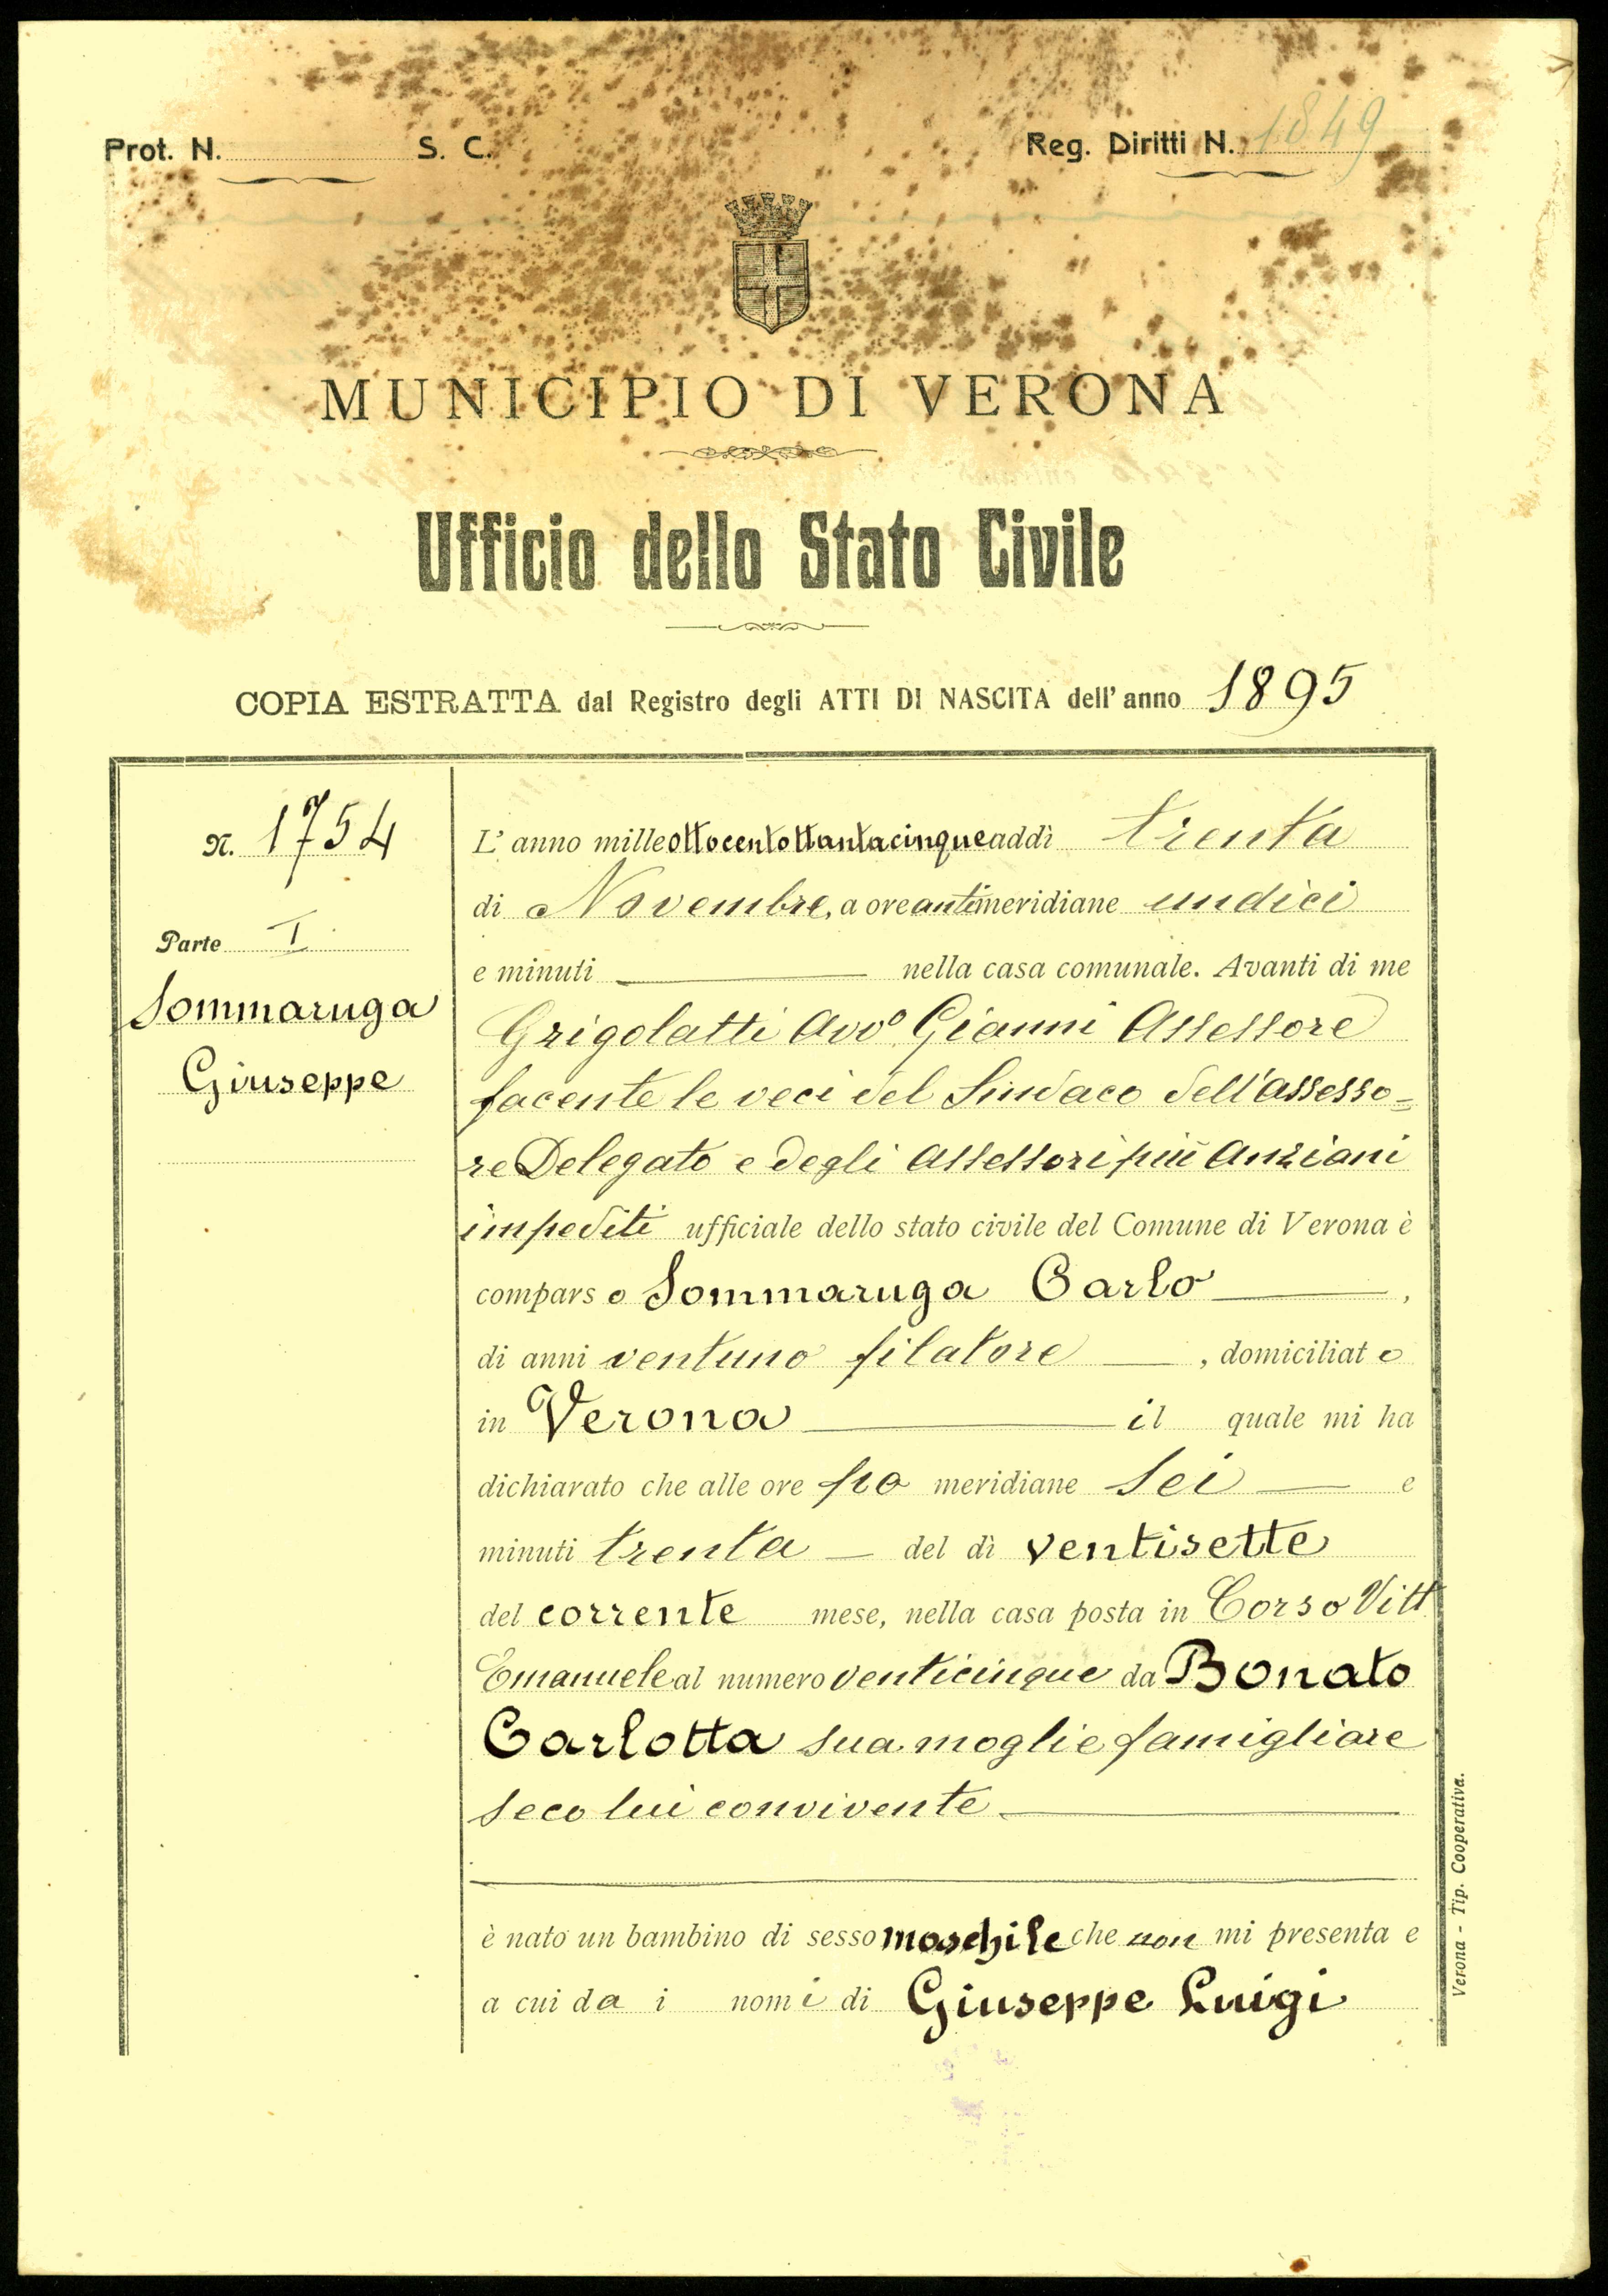 Prot. N. S. C. Reg. Diritti N. 1849
MUNICIPIO DI VERONA
Ufficio dello Stato Civile
COPIA ESTRATTA dal Registro degli ATTI DI NASCITA dell' anno 1895
N. 1754
Parte I
Sommaruga
Giuseppe
L' anno milleottocentottantacinque addì trenta
di Novembre, a ore antimeridiane undici
e minuti nella casa comunale. Avanti di me
Grigolatti Avvo. Gianni Assessore
facente le veci del Sindaco dell'assesso=
re Delegato e degli Assessori più Anziani
impediti ufficiale dello stato civile del Comune di Verona è
comparso Sommaruga Carlo ,
di anni ventuno filatore , domiciliato
in Verona il quale mi ha
dichiarato che alle ore po meridiane sei e
minuti trenta del dì ventisette
del corrente mese, nella casa posta in Corso Vitt
Emanuele al numero venticinque da Bonato
Carlotta sua moglie famigliare
seco lui convivente
è nato un bambino di sesso maschile che non mi presenta e
a cui da i nomi di Giuseppe Luigi
Verona - Tip. Cooperativa.